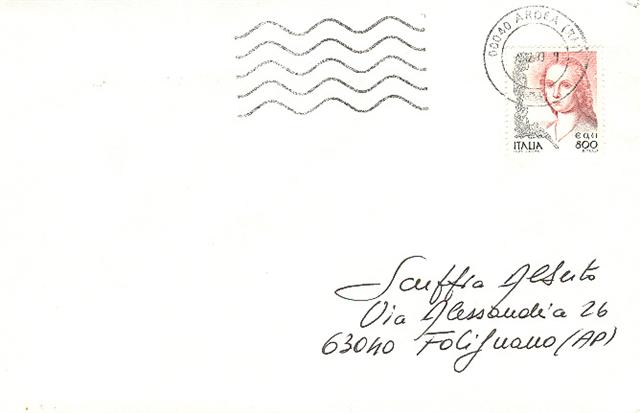 00040 ARDEA
€ 0,41
ITALIA 800
Scuffia Alberto
Via Alessandria 26
63040 Folignano (AP)